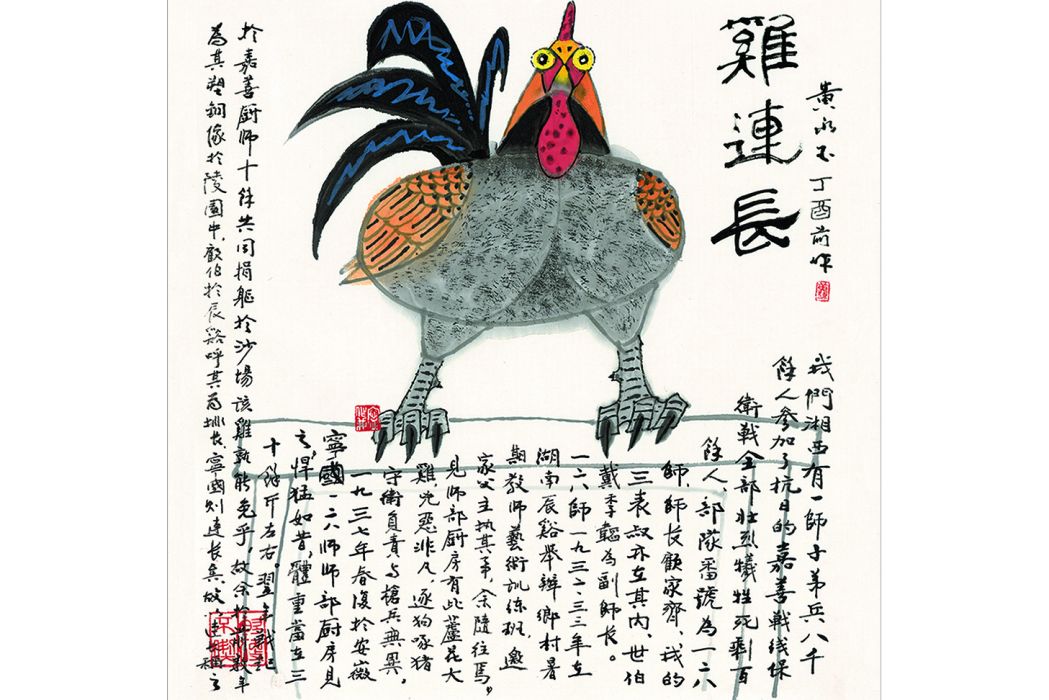 雞連長
黃永玉丁酉前作
我們湘西有一師子弟兵八千
餘人參加了抗日的嘉善戰线保
衛戰全部壯烈犧牲死剩百
餘人、部隊番號為一二八
師，師長顧家齊、我的
三表叔亦在其內、世伯
戴季韜為副師長。
一六師一九三二、三三年在
湖南辰谿舉辦鄉村暑
期教師藝術訓练班，邀
家父主执其事，余隨往焉，
見師部厨房有此蘆花大
雞，兇惡非凡，逐狗啄猪
守衛負責，与槍兵無異，
一九三七年春復於安徽
寧國一二八師師部厨房見
之，悍猛如昔，體重當在三
十餘斤左右。翌年戰
於嘉善厨師十餘共同捐軀於沙場該雞孰能免乎，故余於前數年
為其塑銅像於陵園中，於辰谿呼其為排長、寧國则連長矣、故稱之